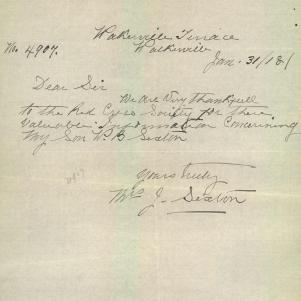 Wakerville Terrace
Wackerville
No. 4907.
Jan. 31/18/
Dear Sir
We are Very thankfull
to the Red Cross Society for there
Valuable Information Concerning
My Son W. B Sexton
Yours truly
Mrs J. Sexton